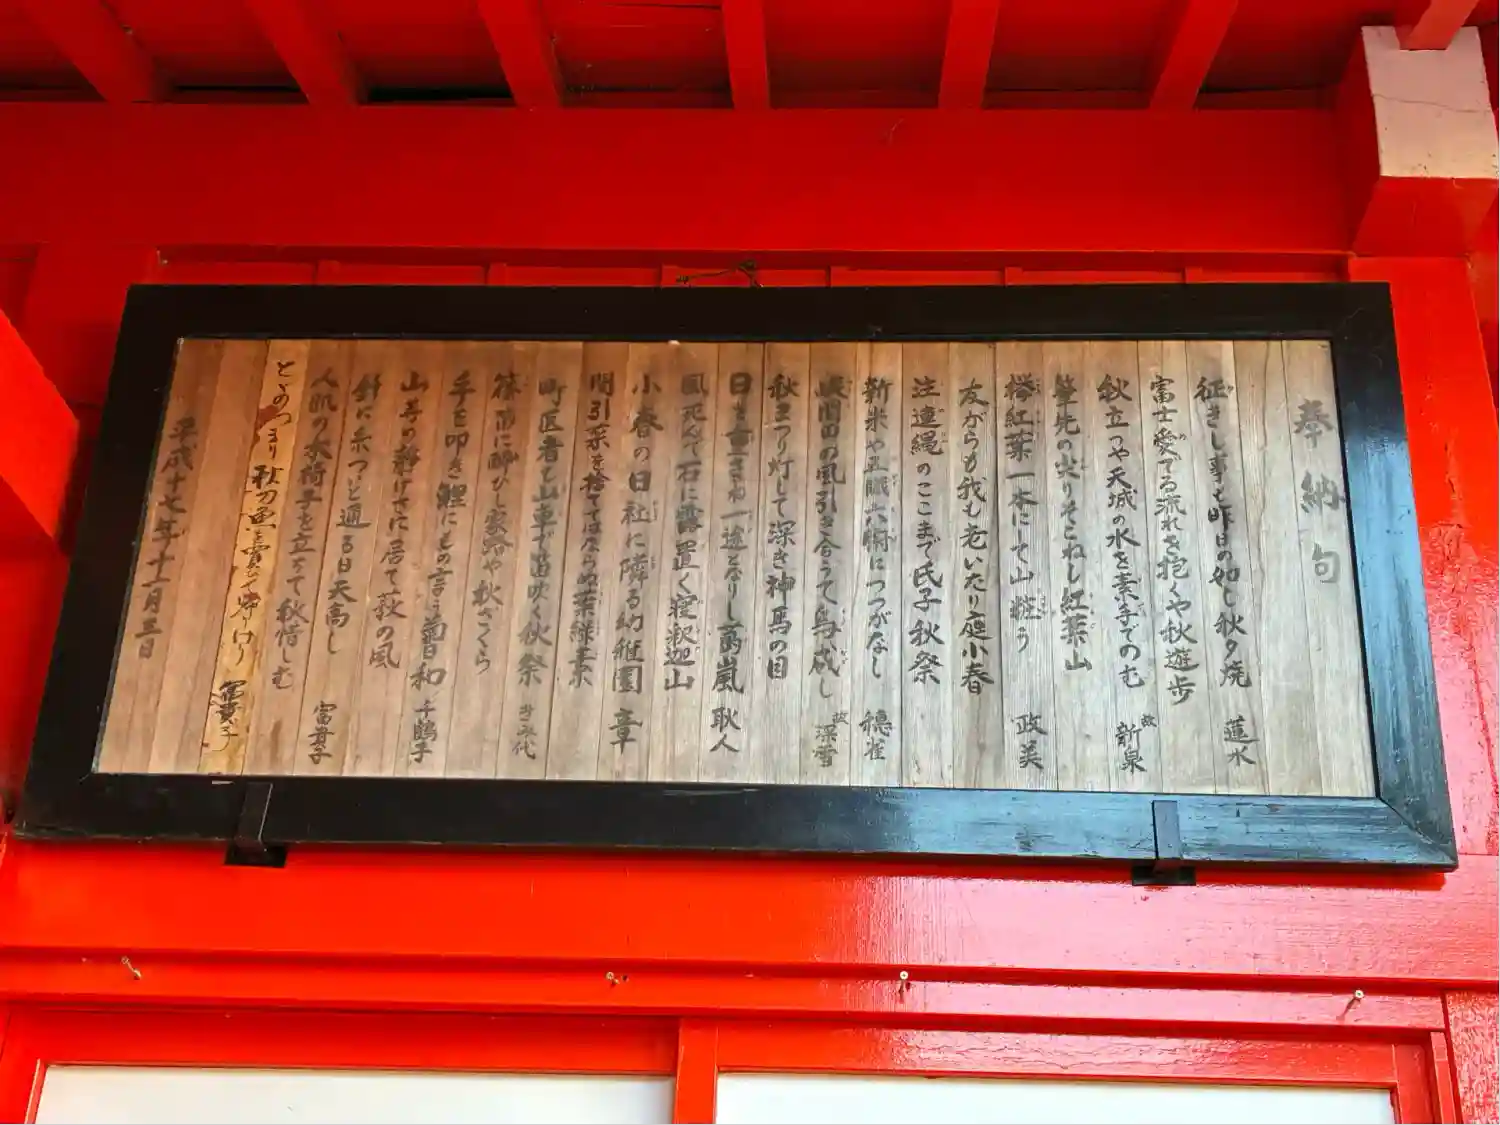 奉納句
征きし事も昨日の如し秋夕焼 蓮水
富士愛でる流れを抱くや秋遊歩
秋立つや天城の水を素手でのむ 故 新泉
筆先の尖りそこねし紅葉山
欅紅葉一本にして山粧う 政美
友がらも我も老いたり庭小春
注連縄のここまで氏子秋祭
新米や五眼六腑につつがなし 穂雀
峡間田の風引き合うて鳥威し 故 深雪
秋まつり灯して深き神馬の目
日を重さね一途となりし蔦嵐 耿人
風死んで石に露置く寝釈迦山
小春の日社に隣る幼稚園 章
間引菜を捨ててはならぬ葉緑素
町医者も山車で笛吹く秋祭 きみ代
篠笛に酔ひし家路や秋ざくら
手を叩き鯉にもの言う菊日和 千鶴子
山寺の静けさに居て萩の風
針に糸つと通る日天高し
人肌の木椅子を立ちて秋惜しむ 富貴子
とどのつまり秋刀魚賣ひて帰けり 富貴子
平成十七年十一月三日